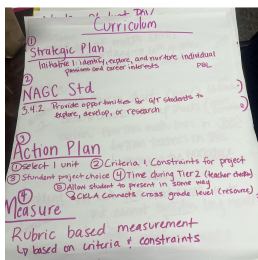 Curriculum
①
Strategic Plan
Initiative 1: identify, explore, and nurture individual
passions and career interests PBL
②
NAGC Std
3.4.2. Provide opportunities for G/T students to
explore, develop, or research
③
Action Plan
① Select 1 unit ② Criteria & Constraints for project
③ Stundent project choice ④ Time during Tier 2 (teacher checks)
⑤ Allow student to present in some way
⑥ CKLA Connects cross grade level (resource)
④
Measure
Rubric based measurement
↳ based on criteria & constraints